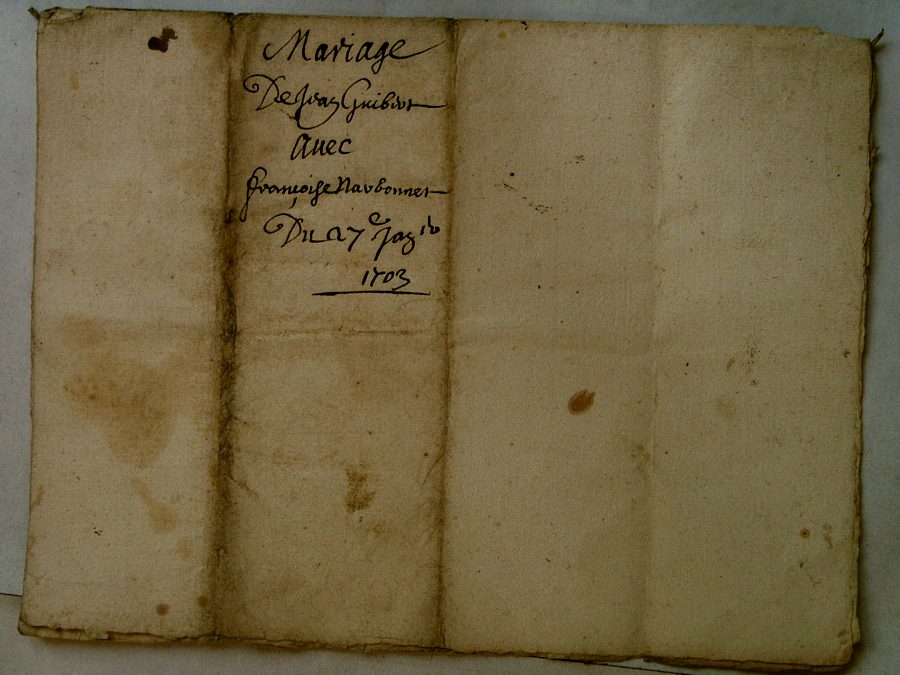 Mariage
De Jean Guibert
Avec
françoise Narbonnet
Du 27e Janv
1703